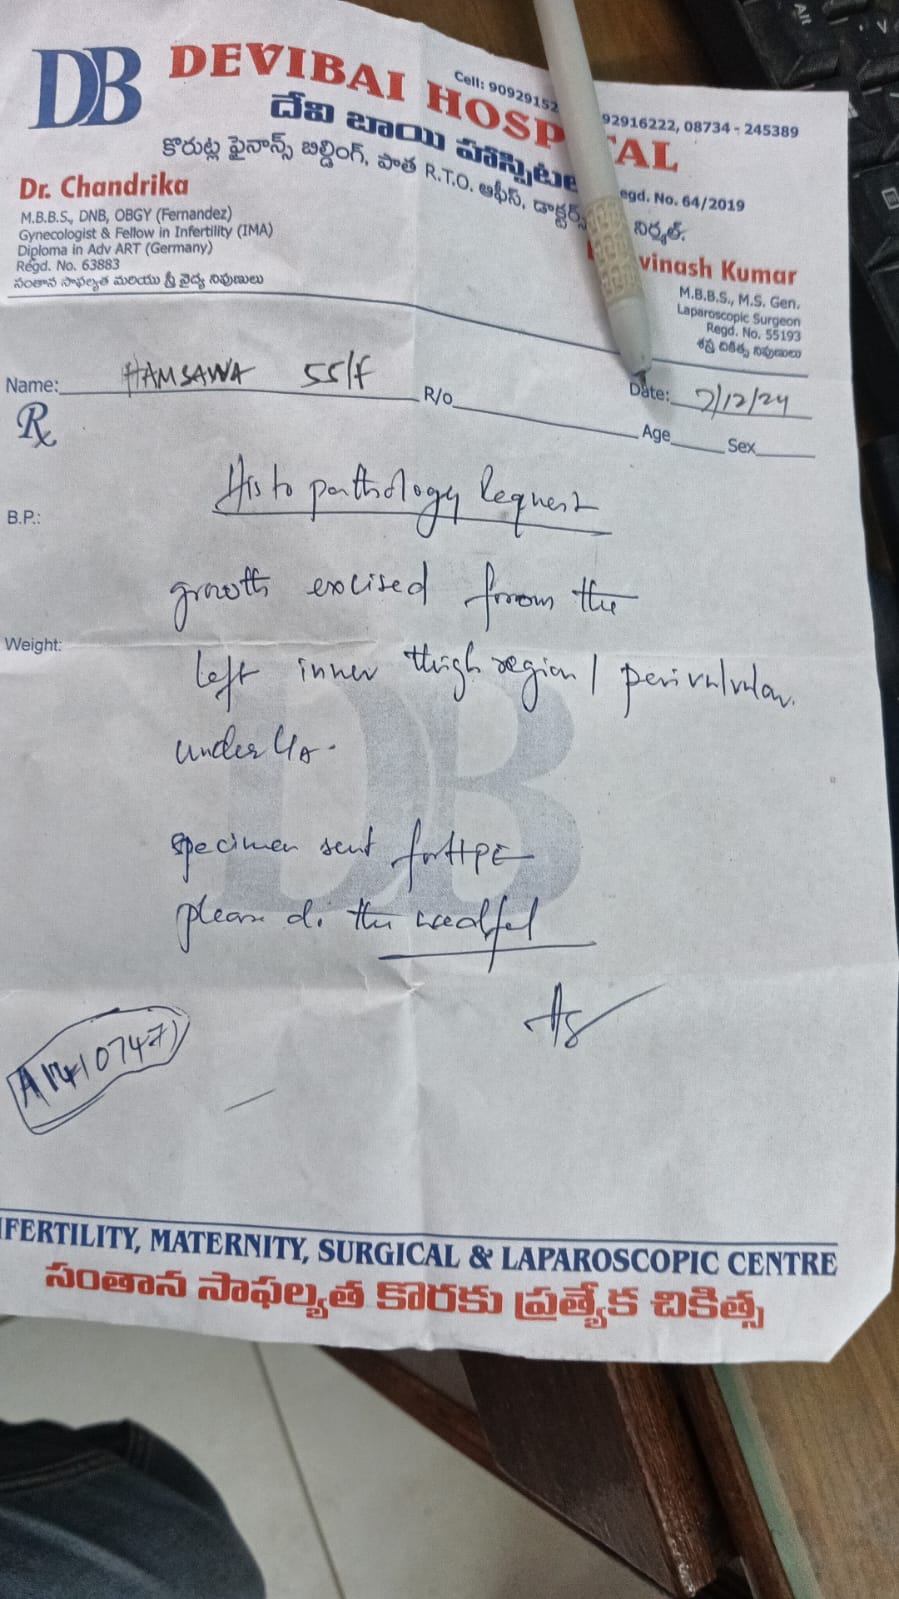 DB DEVIBAI HOSPITAL
Cell: 90929152 92916222, 08734 - 245389
దేవి బాయి హాస్పిటల్
Regd. No. 64/2019
కొరుట్ల ఫైనాన్స్ బిల్డింగ్, పాత R.T.O. ఆఫీస్, డాక్టర్స్ నిర్మల్.
Dr. Chandrika
M.B.B.S., DNB, OBGY (Fernandez)
Gynecologist & Fellow in Infertility (IMA)
Diploma in Adv ART (Germany)
Regd. No. 63883
సంతాన సాఫల్యత మరియు స్త్రీ వైద్య నిపుణులు
vinash Kumar
M.B.B.S., M.S. Gen.
Laparoscopic Surgeon
Regd. No. 55193
శస్త్ర చికిత్స నిపుణులు
Name: HAMSAWA 55/F R/o Date: 7/12/24
Rx Age Sex
Histopathology Request
B.P.:
growth excised from the
Weight:
left inner thigh region / perivulvar
under
specimen sent for HPE
please do the needful
A
INFERTILITY, MATERNITY, SURGICAL & LAPAROSCOPIC CENTRE
సంతాన సాఫల్యత కొరకు ప్రత్యేక చికిత్స